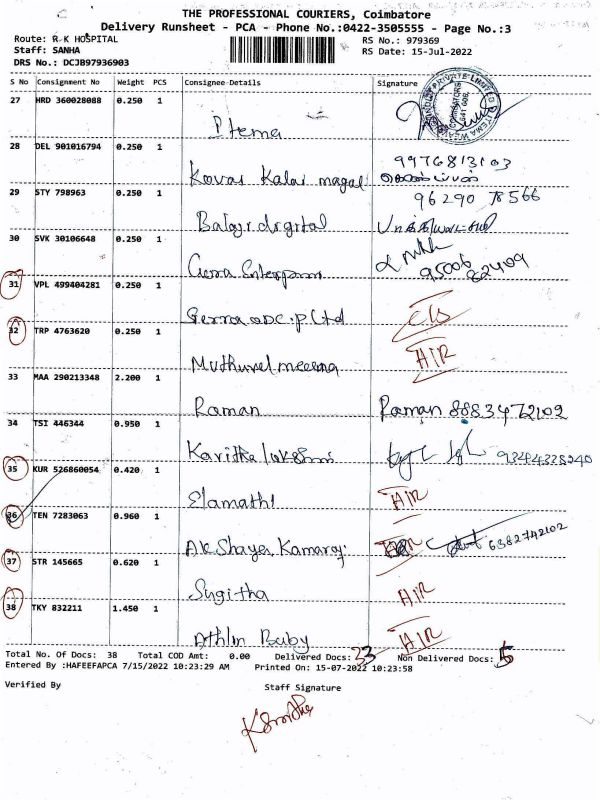 THE PROFESSIONAL COURIERS, Coimbatore
Delivery Runsheet - PCA - Phone No.:0422-3505555 - Page No.:3
Route: R K HOSPITAL
RS No.: 979369
Staff: SANHA
RS Date: 15-Jul-2022
DRS No.: DCJB97936903
S No Consignment No Weight PCS Consignee Details Signature
27 HRD 360028088 0.250 1
Itema
28 DEL 901016794 0.250 1 9976813103
Kovai Kalai magal
29 STY 798963 0.250 1 96290 78566
Balaji digital
30 SVK 30106648 0.250 1
Gema Enterprises 95006 82409
31 VPL 499404281 0.250 1
32 TRP 4763620 0.250 1 AIR
Muthuvel meeena
33 MAA 290213348 2.200 1
Raman Raman 8883472102
34 TSI 446344 0.950 1
Kavitha lakshmi 9384328240
35 KUR 526860054 0.420 1
Elamathi AIR
36 TEN 7283063 0.960 1
Akshaya Kamaraj 6382742102
37 STR 145665 0.620 1
Sugitha AIR
38 TKY 832211 1.450 1
Athlin Buby AIR
Total No. Of Docs: 38 Total COD Amt: 0.00 Delivered Docs: 33 Non Delivered Docs: 5
Entered By :HAFEEFAPCA 7/15/2022 10:23:29 AM Printed On: 15-07-2022 10:23:58
Verified By Staff Signature